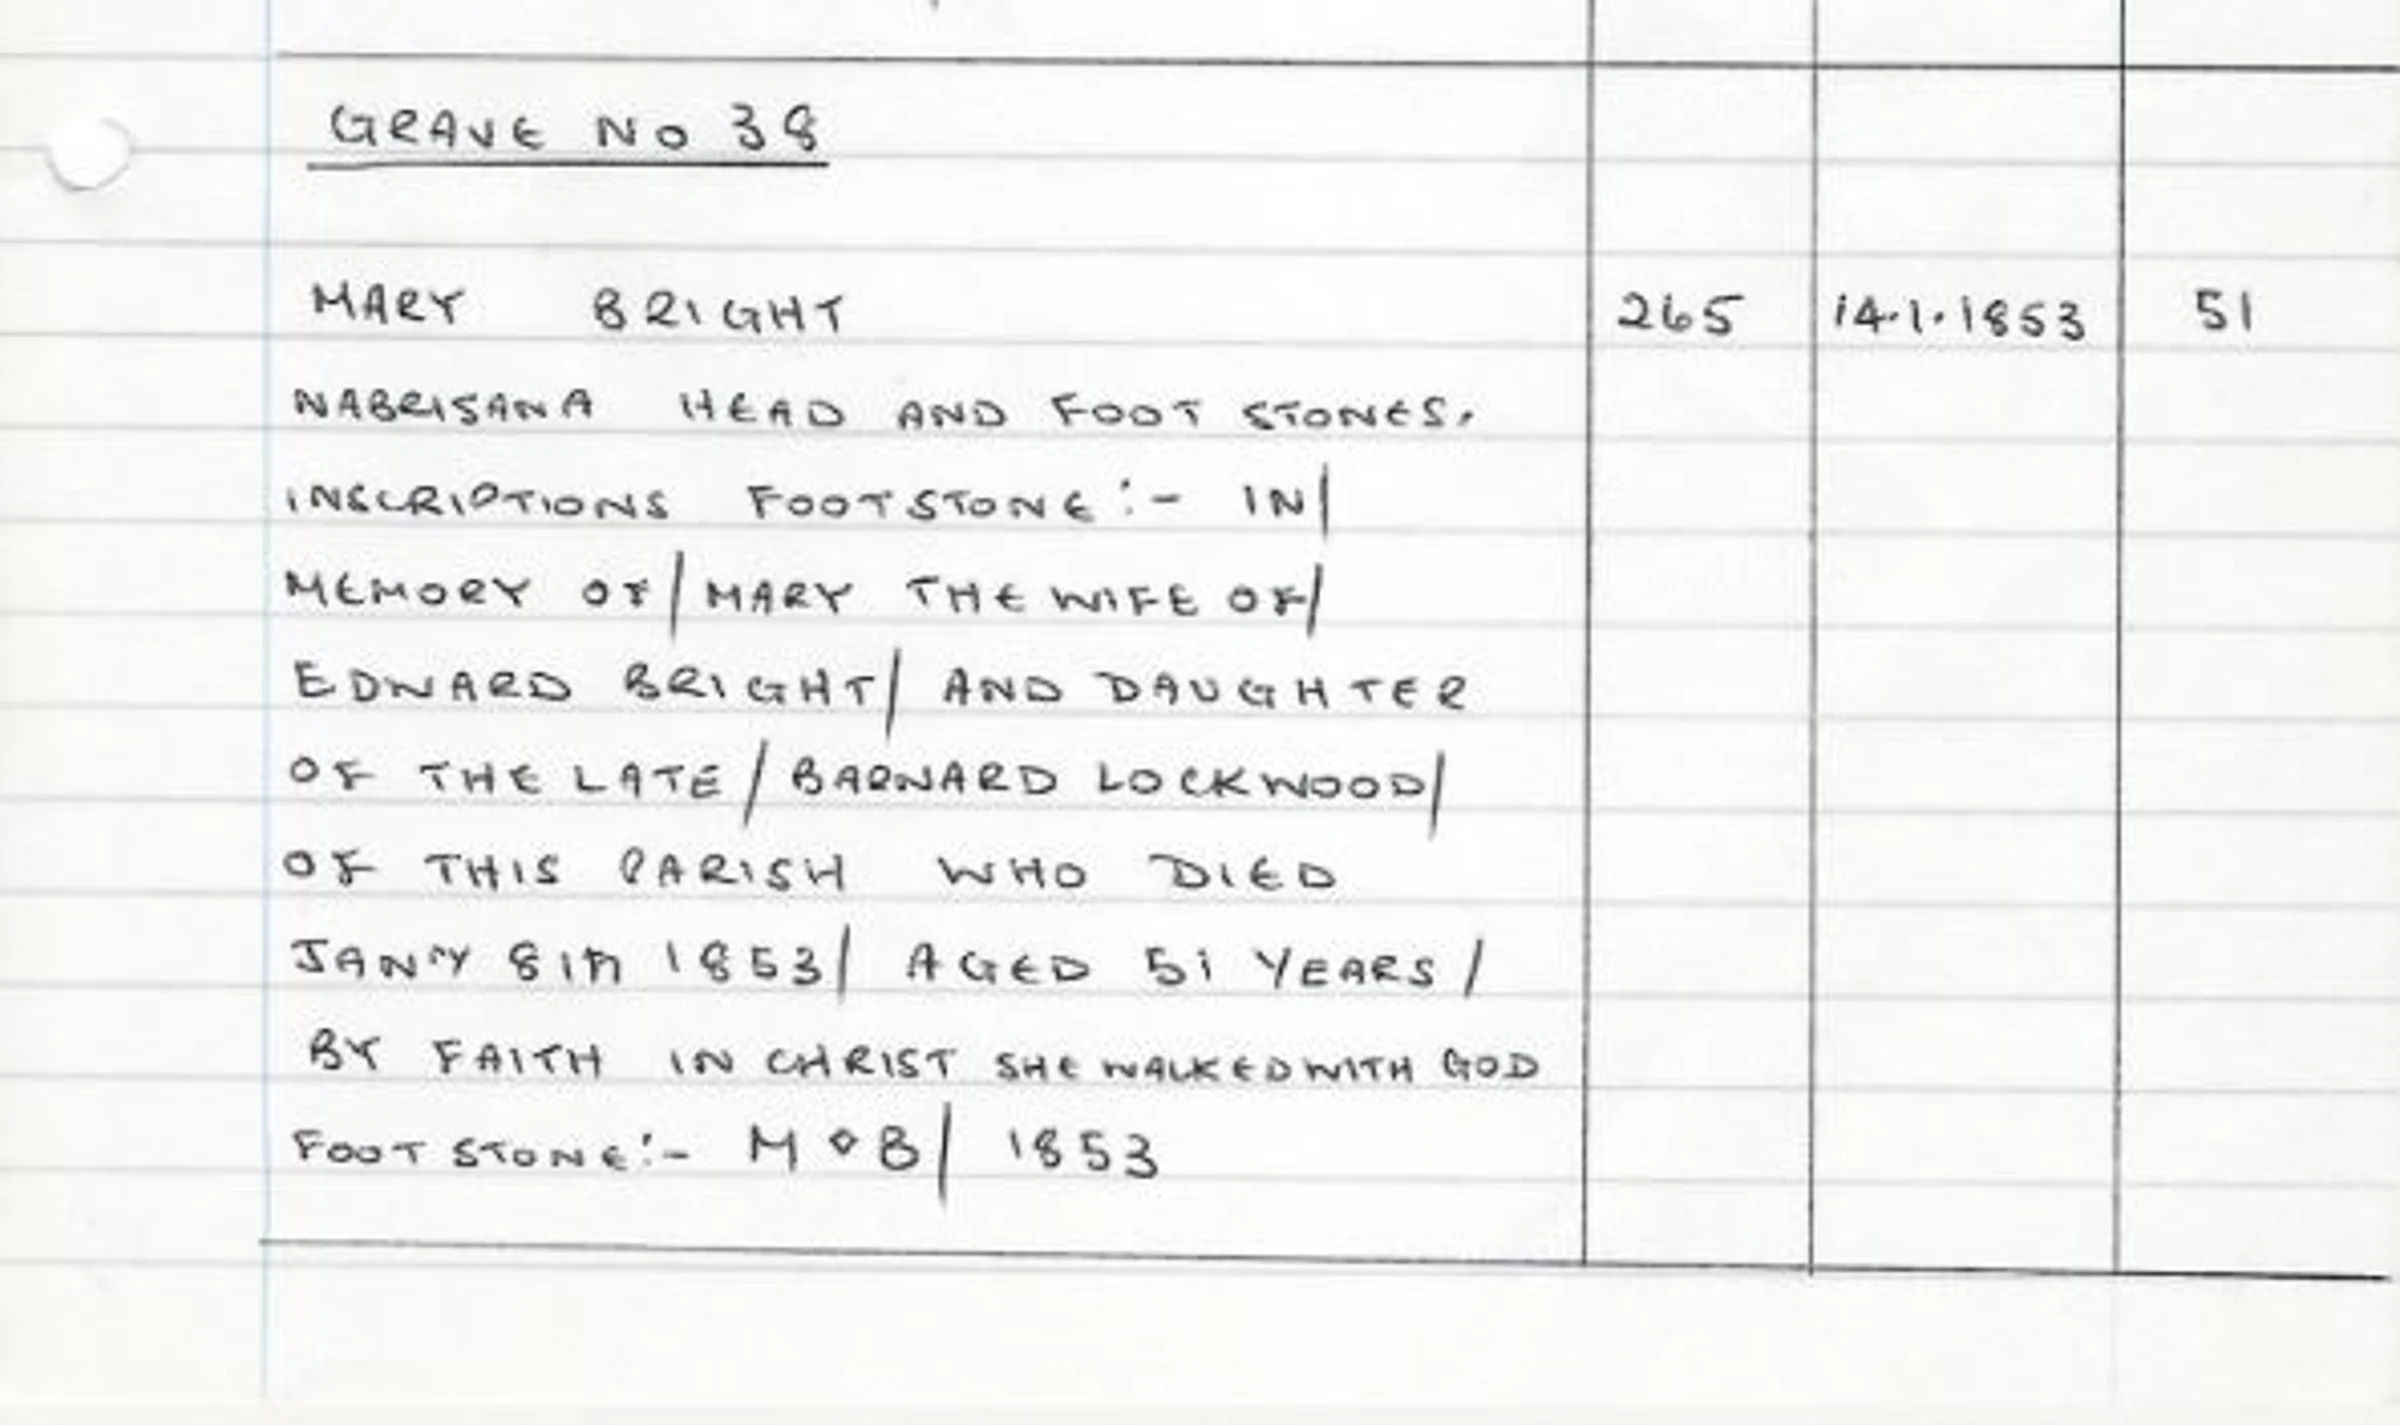 GRAVE No 38
MARY BRIGHT 265 14.1.1853 51
NABRISANA HEAD AND FOOT STONES.
INSCRIPTIONS FOOTSTONE:- IN/
MEMORY OF/ MARY THE WIFE OF/
EDWARD BRIGHT/ AND DAUGHTER
OF THE LATE/ BARNARD LOCKWOOD/
OF THIS PARISH WHO DIED
JANRY 8TH 1853/ AGED 51 YEARS/
BY FAITH IN CHRIST SHE WALKED WITH GOD
FOOT STONE:- M ⋄ B/ 1853